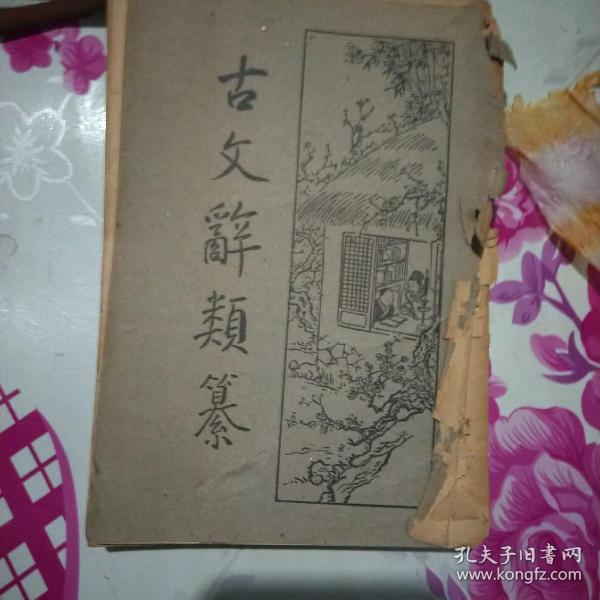 古文辭類纂
孔夫子旧書网
www.kongfz.com